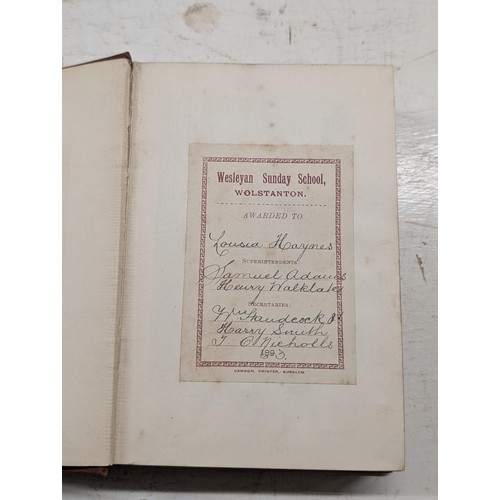 Wesleyan Sunday School,
WOLSTANTON.
AWARDED TO
Lousia Haynes
SUPERINTENDENTS
Samuel Adams
Henry Walklate
SECRETARIES:
Wm Handcock
Harry Smith
T C Nicholls
1893
DAWSON, PRINTER, BURSLEM.